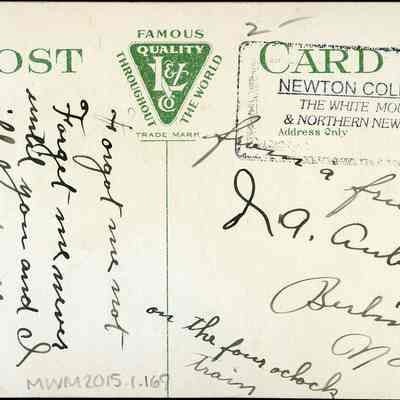 OST CARD
FAMOUS
QUALITY
THROUGHOUT THE WORLD
L&Co
TRADE MARK
2-
NEWTON COL
THE WHITE MOU
& NORTHERN NEW
Address Only
Forget me not
Forget me never
untill you and I
from a frie
Berlin
N
on the four oclock
train
MWM2015.1.169